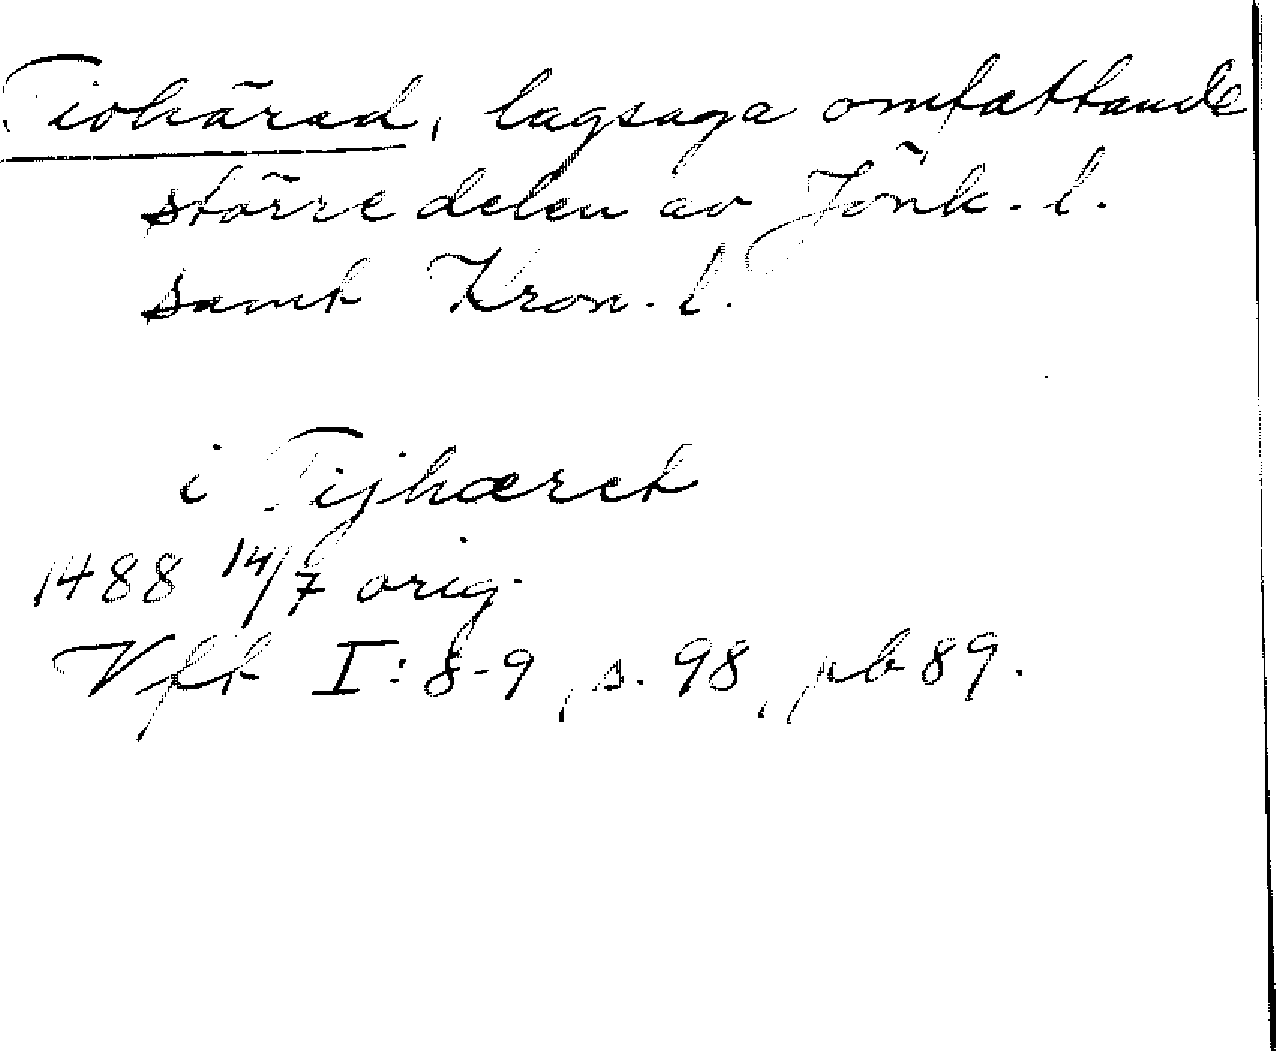 Tiohärad, lagsaga omfattande
större delen av Jönk. l.
samt Kron. l.
i Tijhæret
1488 14/7 orig.
Vfft I: 8-9, s. 98, pb 89.